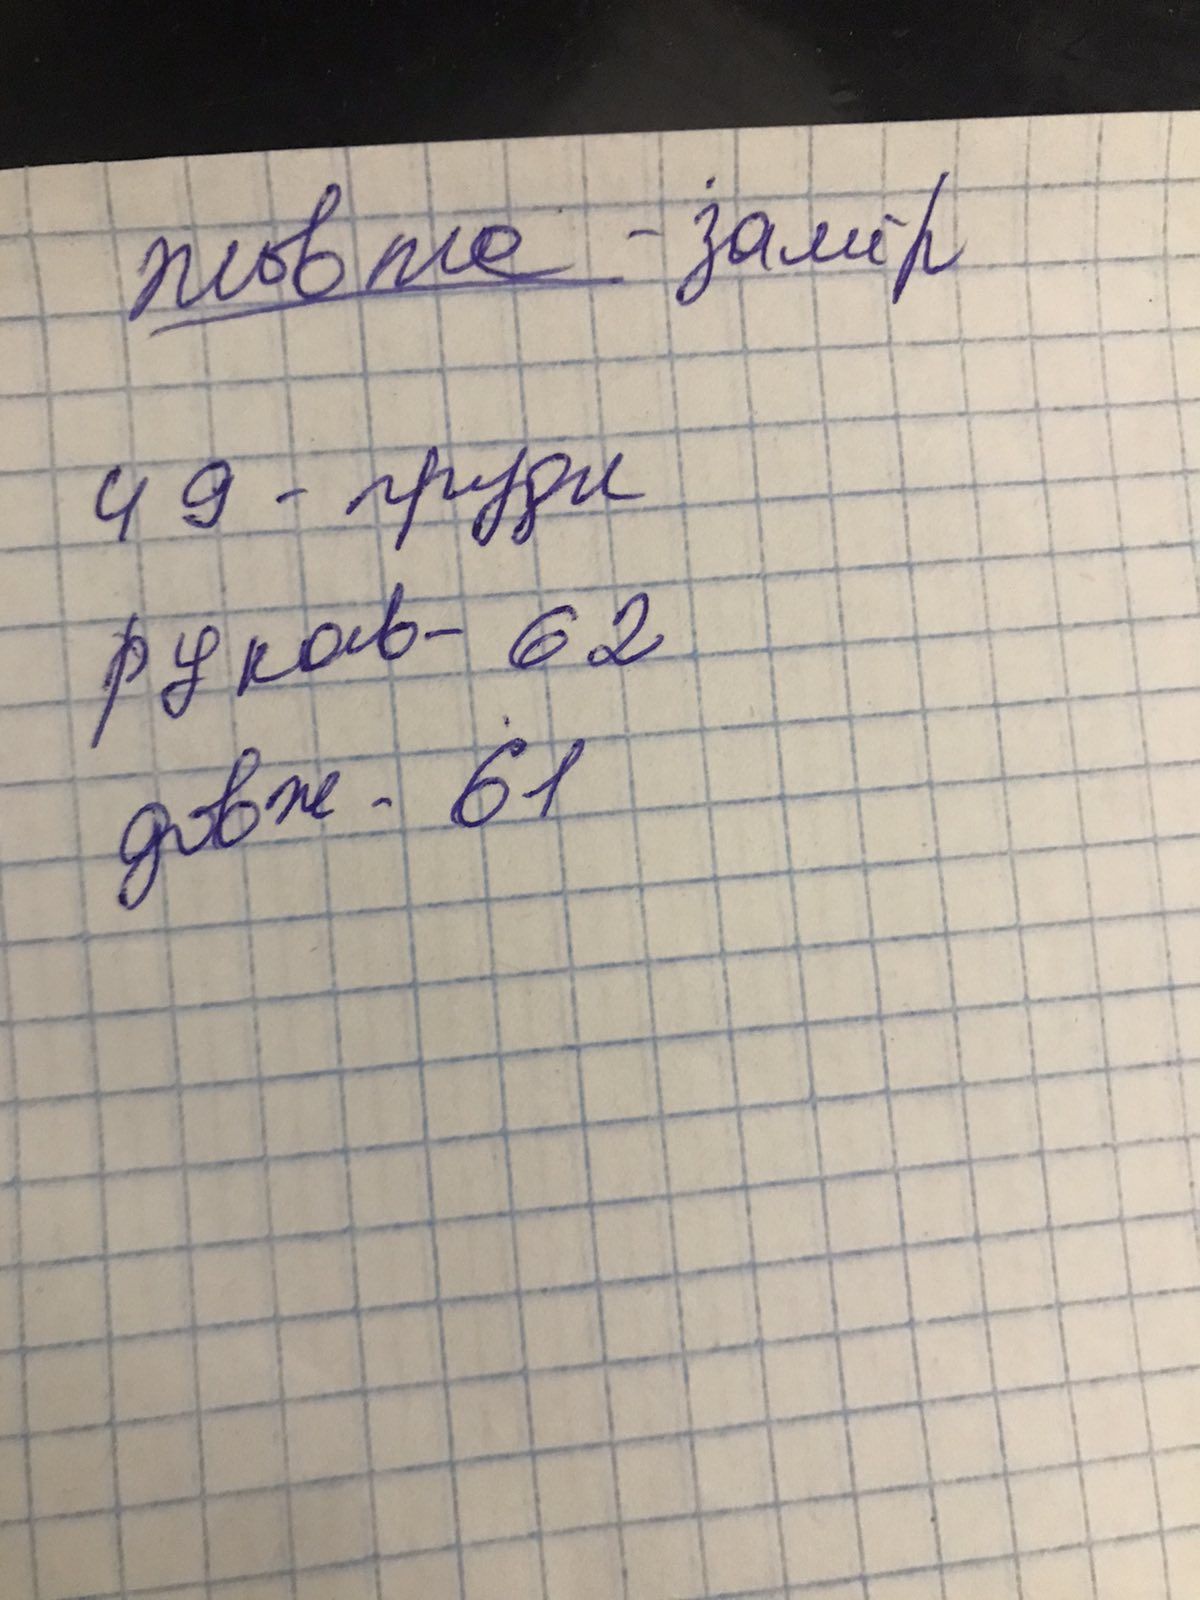 жовте - замір
49 - груди
рукав - 62
довж - 61